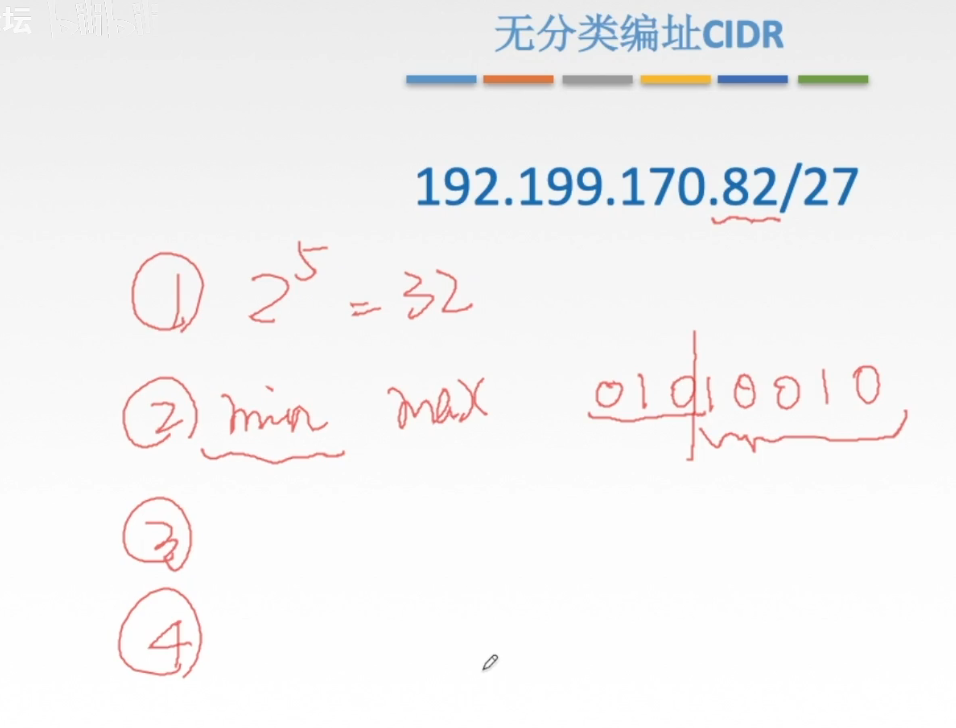 坛
无分类编址CIDR
192.199.170.82/27
① 2⁵ = 32
② min max 010|10010
③
④